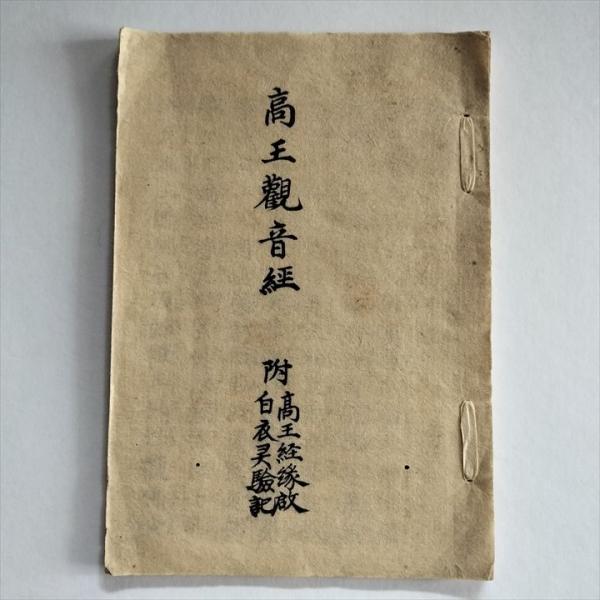 高王觀音經
附
高王経缘啟
白衣灵驗記